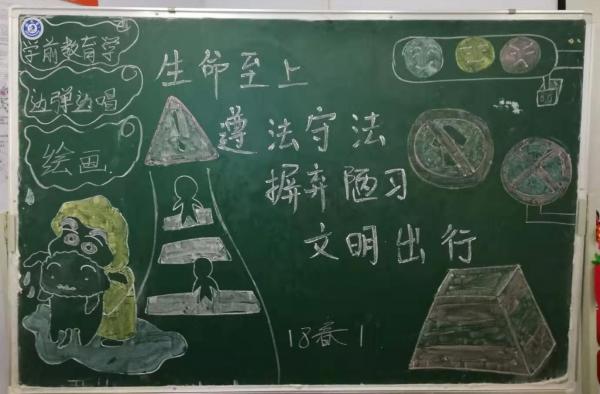 学前教育学
边弹边唱
绘画
生命至上
遵法守法
摒弃陋习
文明出行
18春1